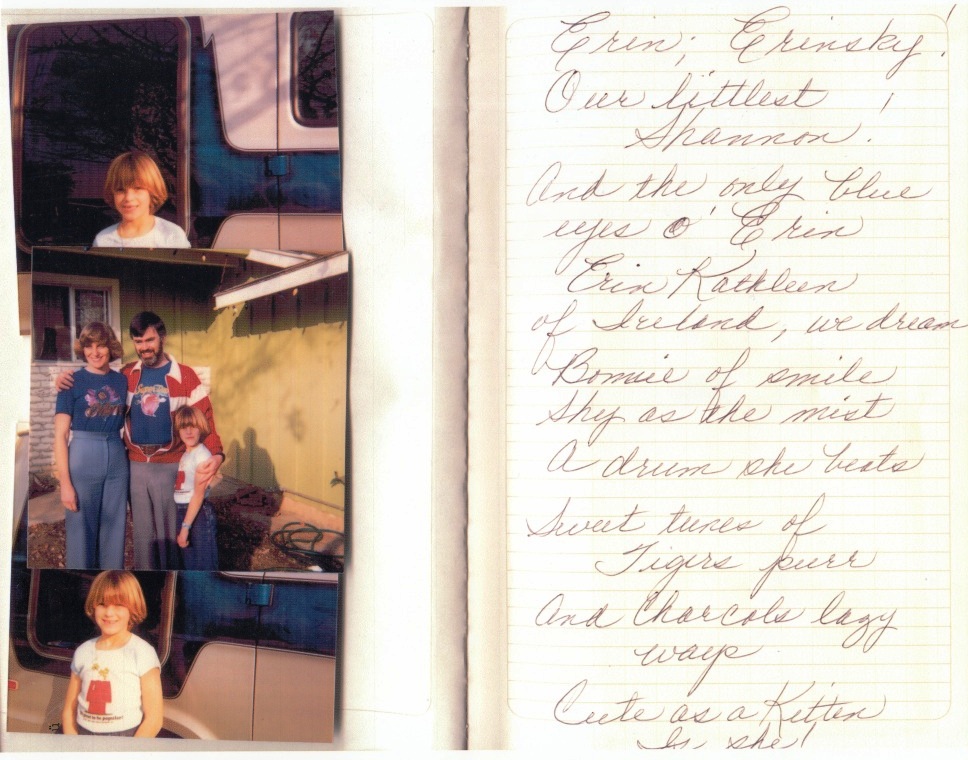 Erin; Erinsky!
Our littlest !
Shannon.
And the only blue
eyes o' Erin
Erin Kathleen
of Ireland, we dream
Bonnie of smile
Shy as the mist
A drum she beats
Sweet tunes of
Tigers purr
And Charcols lazy
ways
Cute as a Kitten
Is she!